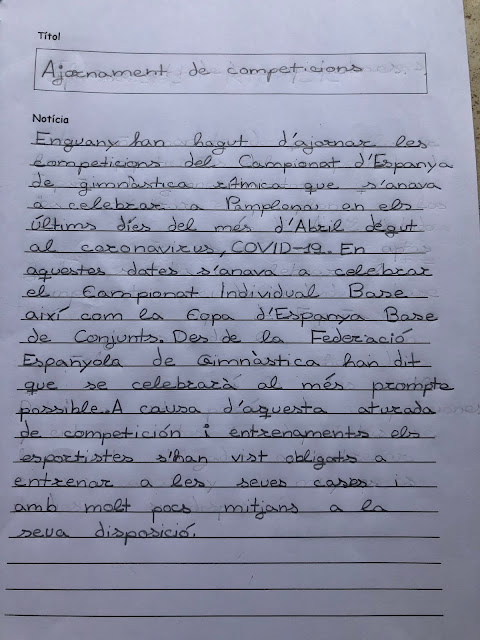 Títol
Ajornament de competicions
Notícia
Enguany han hagut d'ajornar les
competicions del Campionat d'Espanya
de gimnàstica rítmica que s'anava
a celebrar a Pamplona en els
últims díes del més d'Abril degut
al coronavirus, COVID-19. En
aquestes dates s'anava a celebrar
el Campionat Individual Base
així com la Copa d'Espanya Base
de Conjunts. Des de la Federació
Espanyola de Gimnàstica han dit
que se celebrarà al més prompte
possible. A causa d'aquesta aturada
de competición i entrenaments els
esportistes s'han vist obligats a
entrenar a les seues cases i
amb molt pocs mitjans a la
seua disposició.